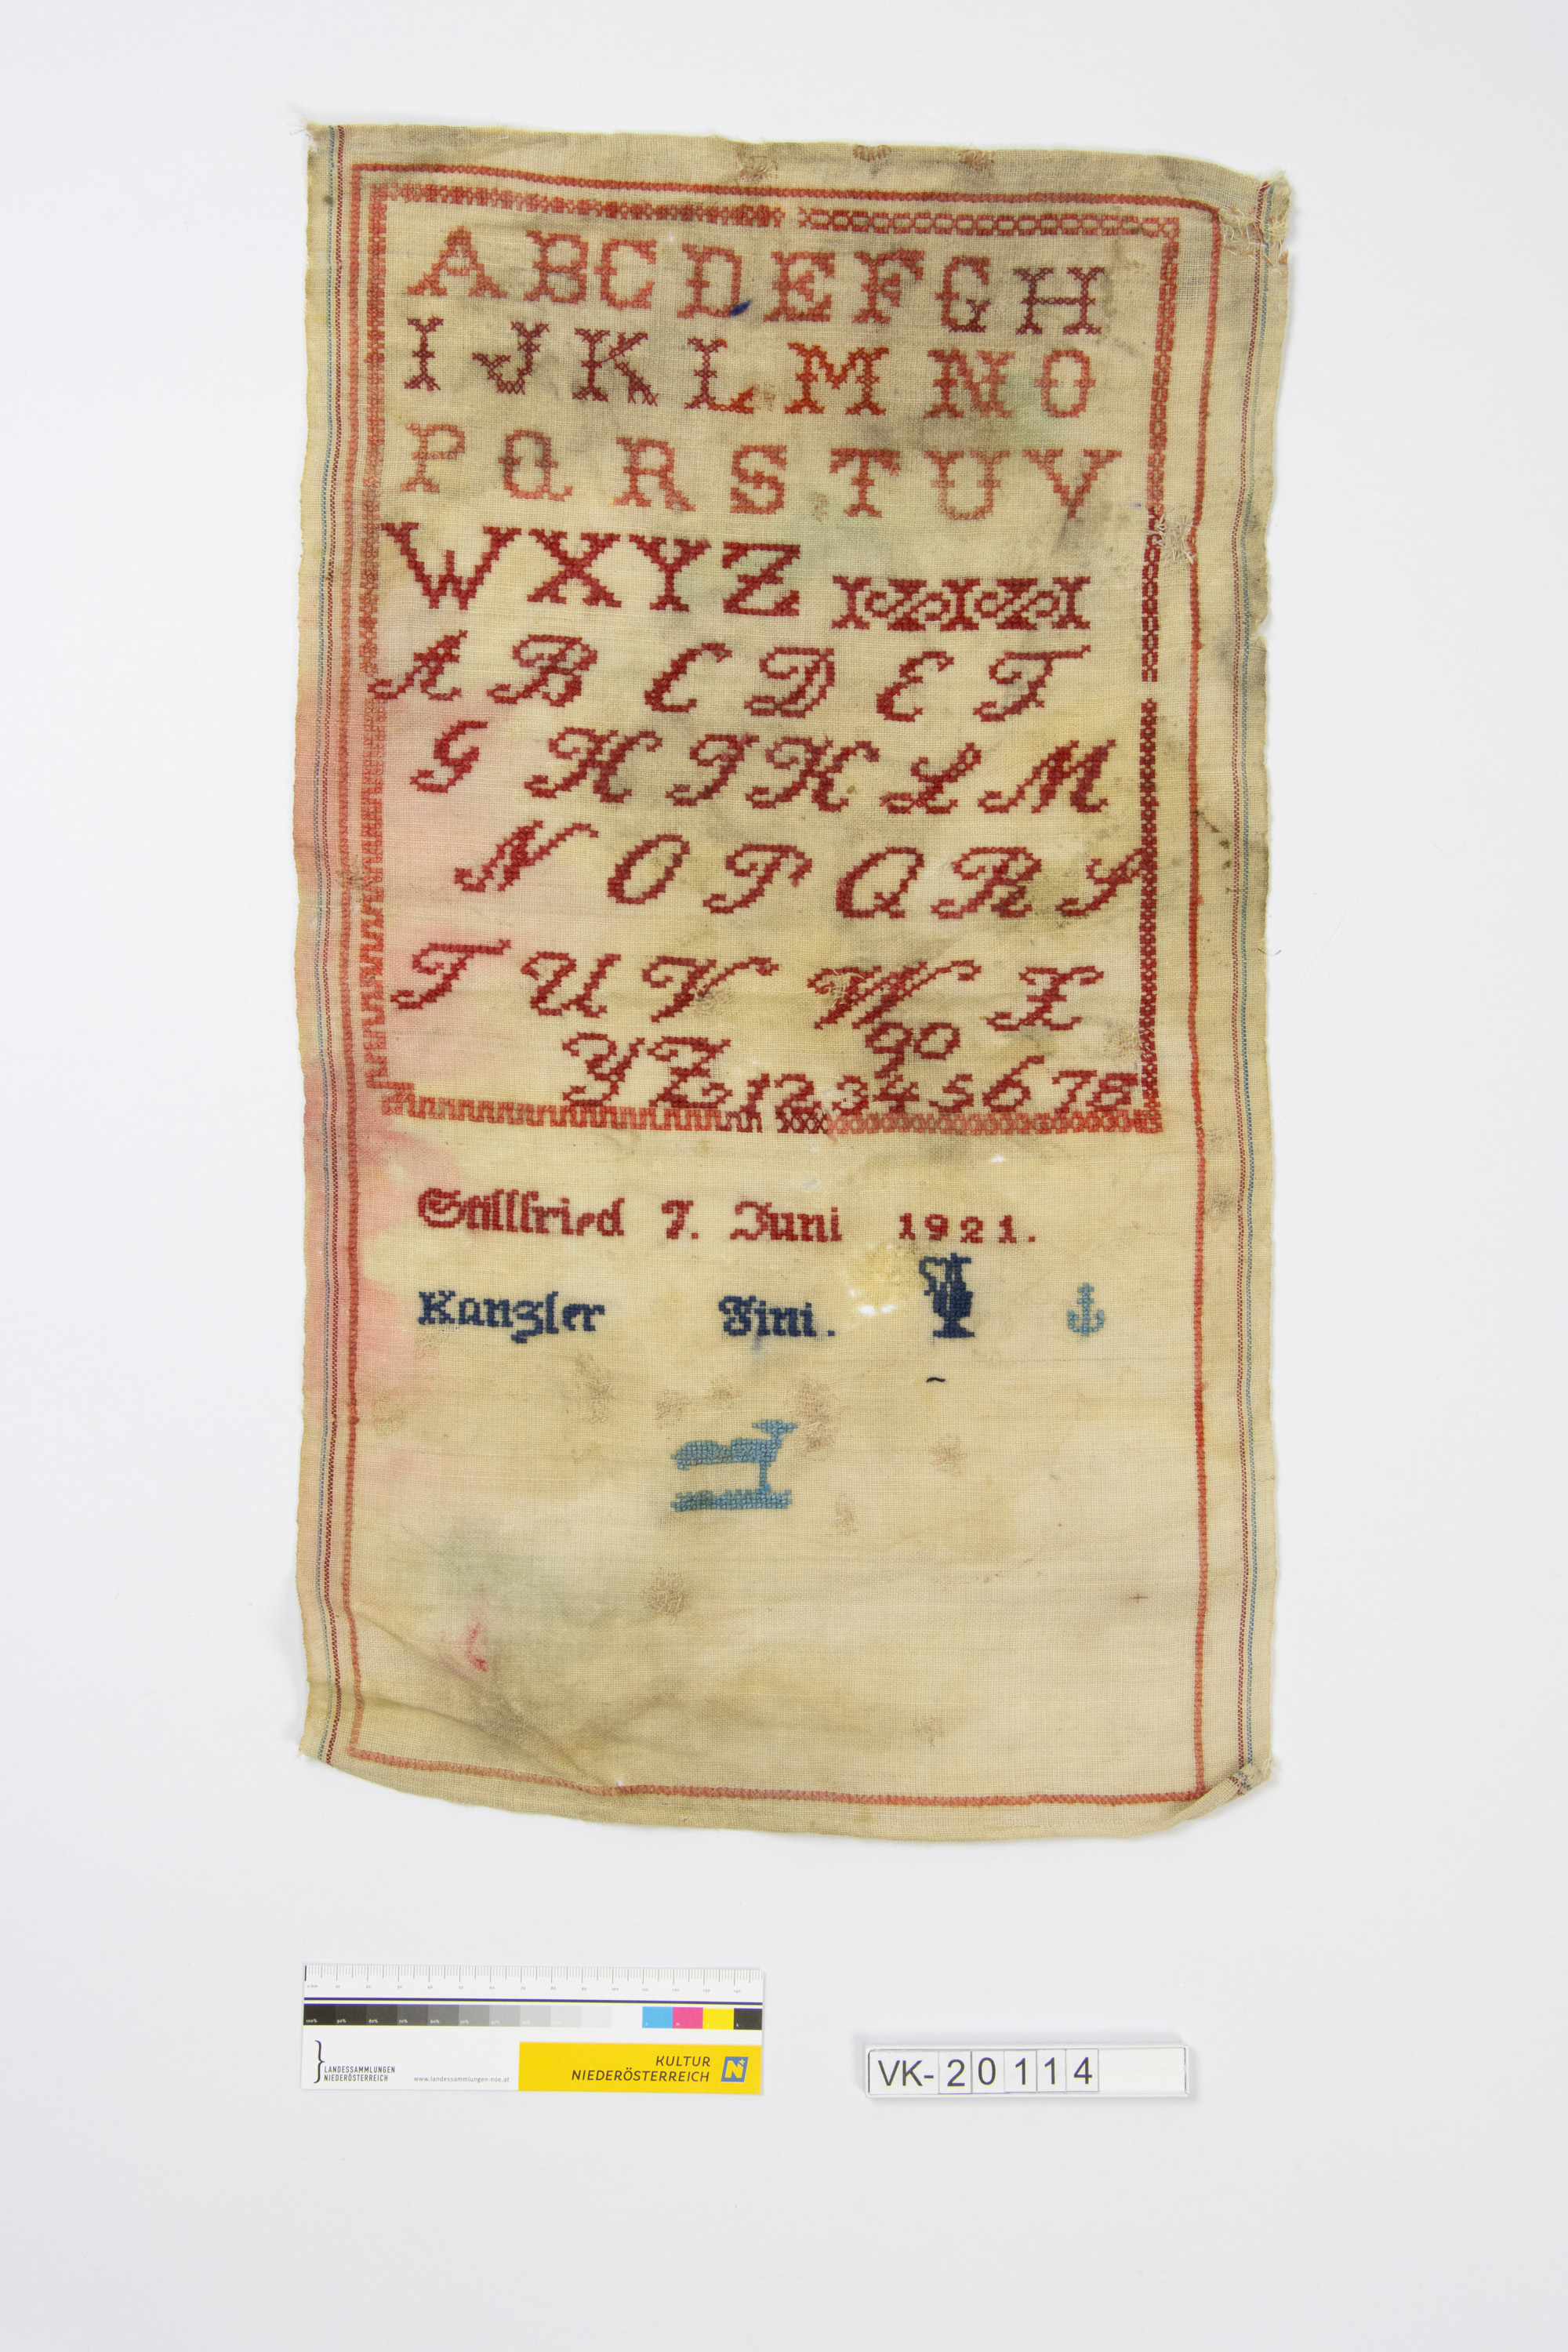 ABCDEFGH
IJKLMNO
PQRSTUV
WXYZ
A B C D E F
G H I K L M
N O P Q R S
T U V W X
90
YZ 12345678
Stillfried 7. Juni 1921.
Kanzler Fini.
LANDESSAMMLUNGEN
NIEDERÖSTERREICH
www.landessammlungen-noe.at
KULTUR
NIEDERÖSTERREICH
N
VK-20114